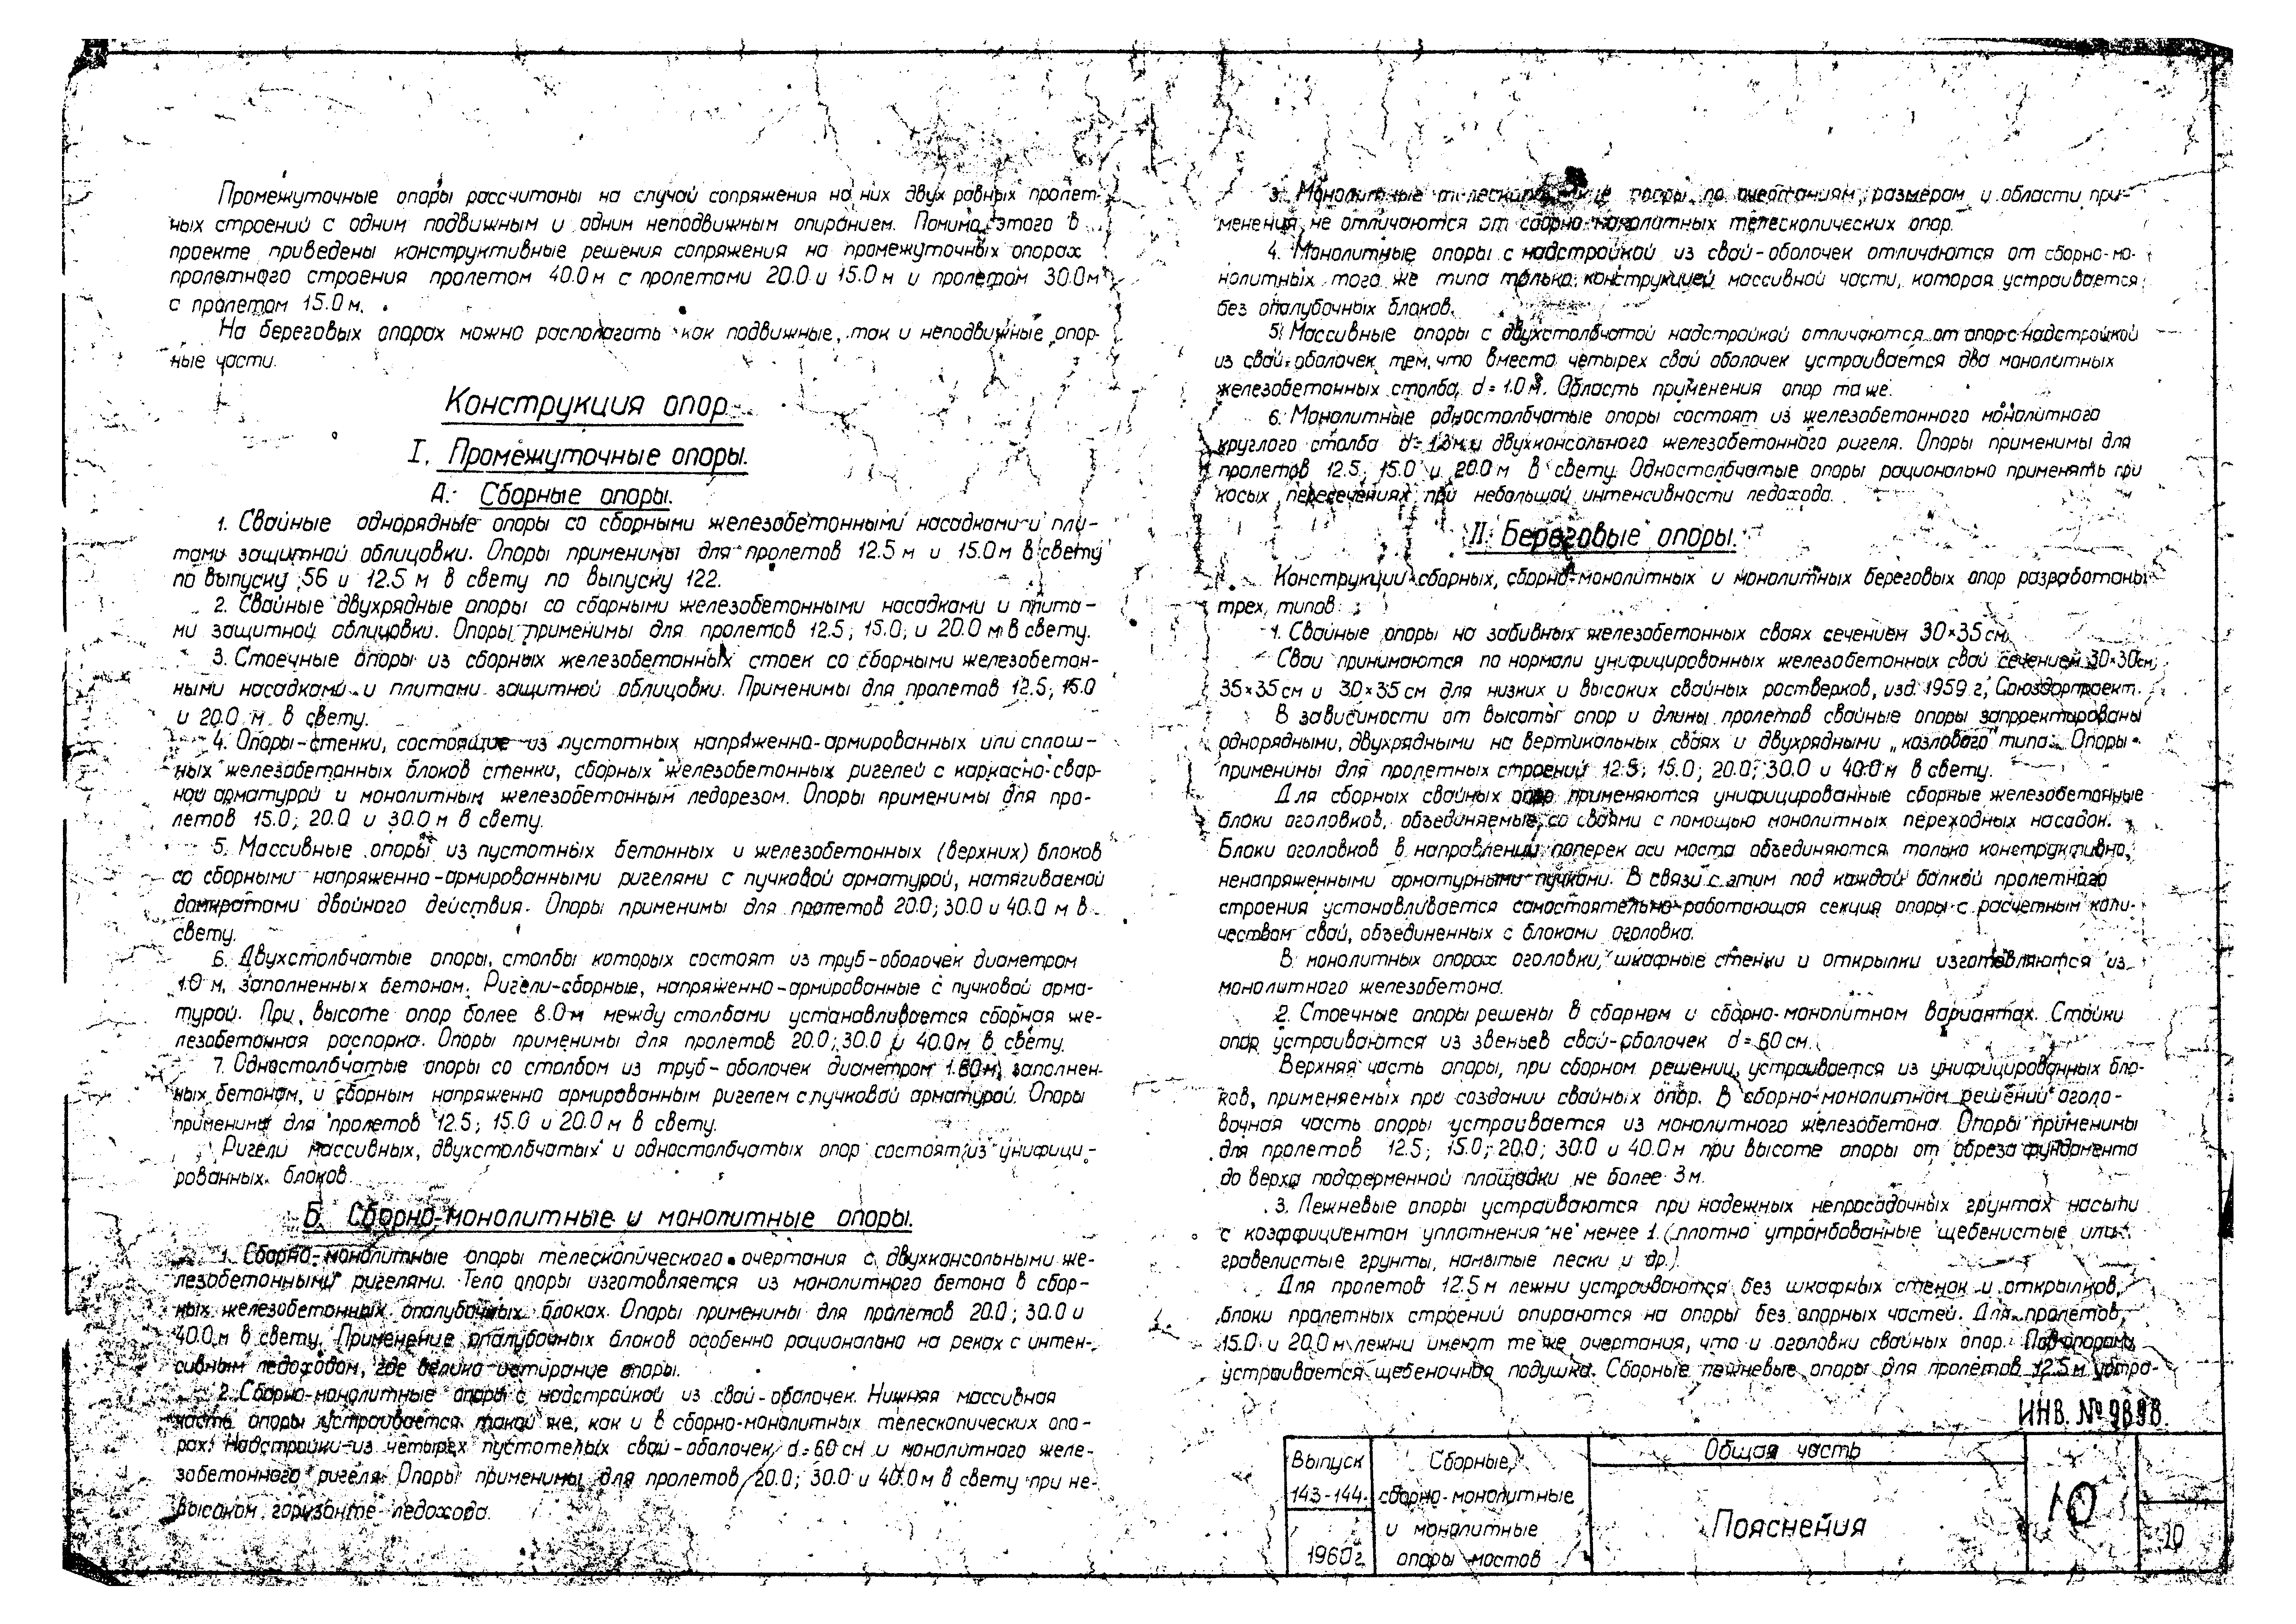 Промежуточные опоры рассчитаны на случай сопряжения на них двух равных пролет-
ных строений с одним подвижным и одним неподвижным опиранием. Помимо этого в
проекте приведены конструктивные решения сопряжения на промежуточных опорах
пролетного строения пролетом 40.0 м с пролетами 20.0 и 15.0 м и пролетом 30.0 м
с пролетом 15.0 м.
На береговых опорах можно располагать как подвижные, так и неподвижные опор-
ные части.
Конструкция опор
I. Промежуточные опоры.
А. Сборные опоры.
1. Свайные однорядные опоры со сборными железобетонными насадками и пли-
тами защитной облицовки. Опоры применимы для пролетов 12.5 м и 15.0 м в свету
по выпуску 56 и 12.5 м в свету по выпуску 122.
2. Свайные двухрядные опоры со сборными железобетонными насадками и плита-
ми защитной облицовки. Опоры применимы для пролетов 12.5; 15.0; и 20.0 м в свету.
3. Стоечные опоры из сборных железобетонных стоек со сборными железобетон-
ными насадками и плитами защитной облицовки. Применимы для пролетов 12.5; 15.0
и 20.0 м в свету.
4. Опоры-стенки, состоящие из пустотных напряженно-армированных или сплош-
ных железобетонных блоков стенки, сборных железобетонных ригелей с каркасно-свар-
ной арматурой и монолитным железобетонным ледорезом. Опоры применимы для про-
летов 15.0; 20.0 и 30.0 м в свету.
5. Массивные опоры из пустотных бетонных и железобетонных (верхних) блоков
со сборными напряженно-армированными ригелями с пучковой арматурой, натягиваемой
домкратами двойного действия. Опоры применимы для пролетов 20.0; 30.0 и 40.0 м в
свету.
6. Двухстолбчатые опоры, столбы которых состоят из труб-оболочек диаметром
1.0 м, заполненных бетоном. Ригели-сборные, напряженно-армированные с пучковой арма-
турой. При высоте опор более 8.0 м между столбами устанавливается сборная же-
лезобетонная распорка. Опоры применимы для пролетов 20.0; 30.0 и 40.0 м в свету.
7. Одностолбчатые опоры со столбом из труб-оболочек диаметром 1.60 м, заполнен-
ных бетоном, и сборным напряженно армированным ригелем с пучковой арматурой. Опоры
применимы для пролетов 12.5; 15.0 и 20.0 м в свету.
Ригели массивных, двухстолбчатых и одностолбчатых опор состоят из унифици-
рованных блоков.
Б. Сборно-монолитные и монолитные опоры.
1. Сборно-монолитные опоры телескопического очертания с двухконсольными же-
лезобетонными ригелями. Тело опоры изготовляется из монолитного бетона в сбор-
ных железобетонных опалубочных блоках. Опоры применимы для пролетов 20.0; 30.0 и
40.0 м в свету. Применение опалубочных блоков особенно рационально на реках с интен-
сивным ледоходом, где велико истирание опоры.
2. Сборно-монолитные опоры с надстройкой из свай-оболочек. Нижняя массивная
часть опоры устраивается такой же, как и в сборно-монолитных телескопических опо-
рах. Надстройки из четырех пустотелых свай-оболочек d=60 см и монолитного желе-
зобетонного ригеля. Опоры применимы для пролетов 20.0; 30.0 и 40.0 м в свету при не-
высоком горизонте ледохода.
3. Монолитные телескопические опоры по очертаниям, размерам и области при-
менения не отличаются от сборно-монолитных телескопических опор.
4. Монолитные опоры с надстройкой из свай-оболочек отличаются от сборно-мо-
нолитных того же типа только конструкцией массивной части, которая устраивается
без опалубочных блоков.
5. Массивные опоры с двухстолбчатой надстройкой отличаются от опор с надстройкой
из свай-оболочек тем, что вместо четырех свай оболочек устраивается два монолитных
железобетонных столба d=1.0 м. Область применения опор та же.
6. Монолитные одностолбчатые опоры состоят из железобетонного монолитного
круглого столба и двухконсольного железобетонного ригеля. Опоры применимы для
пролетов 12.5; 15.0 и 20.0 м в свету. Одностолбчатые опоры рационально применять при
косых пересечениях при небольшой интенсивности ледохода.
II. Береговые опоры.
Конструкции сборных, сборно-монолитных и монолитных береговых опор разработаны
трех типов:
1. Свайные опоры на забивных железобетонных сваях сечением 30×35 см.
Сваи принимаются по нормали унифицированных железобетонных свай сечением 30×30 см;
35×35 см и 30×35 см для низких и высоких свайных ростверков, изд. 1959 г., Союздорпроект.
В зависимости от высоты опор и длины пролетов свайные опоры запроектированы
однорядными, двухрядными на вертикальных сваях и двухрядными „козлового" типа. Опоры
применимы для пролетных строений 12.5; 15.0; 20.0; 30.0 и 40.0 м в свету.
Для сборных свайных опор применяются унифицированные сборные железобетонные
блоки оголовков, объединяемые со сваями с помощью монолитных переходных насадок.
Блоки оголовков в направлении поперек оси моста объединяются только конструктивно,
ненапряженными арматурными пучками. В связи с этим под каждой балкой пролетного
строения устанавливается самостоятельно-работающая секция опоры с расчетным коли-
чеством свай, объединенных с блоками оголовка.
В монолитных опорах оголовки, шкафные стенки и открылки изготовляются из
монолитного железобетона.
2. Стоечные опоры решены в сборном и сборно-монолитном вариантах. Стойки
опор устраиваются из звеньев свай-оболочек d=60 см.
Верхняя часть опоры, при сборном решении, устраивается из унифицированных бло-
ков, применяемых при создании свайных опор. В сборно-монолитном решении оголо-
вочная часть опоры устраивается из монолитного железобетона. Опоры применимы
для пролетов 12.5; 15.0; 20.0; 30.0 и 40.0 м при высоте опоры от обреза фундамента
до верха подферменной площадки не более 3 м.
3. Лежневые опоры устраиваются при надежных непросадочных грунтах насыпи
с коэффициентом уплотнения не менее 1 (плотно утрамбованные щебенистые или
гравелистые грунты, намытые пески и др.)
Для пролетов 12.5 м лежни устраиваются без шкафных стенок и открылков,
блоки пролетных строений опираются на опоры без опорных частей. Для пролетов
15.0 и 20.0 м лежни имеют те же очертания, что и оголовки свайных опор. Под опорами
устраивается щебеночная подушка. Сборные лежневые опоры для пролетов 12.5 м устра-
ИНВ. № 9898.
Выпуск
143-144.
1960 г.
Сборные,
сборно-монолитные
и монолитные
опоры мостов
Общая часть
Пояснения
10
10